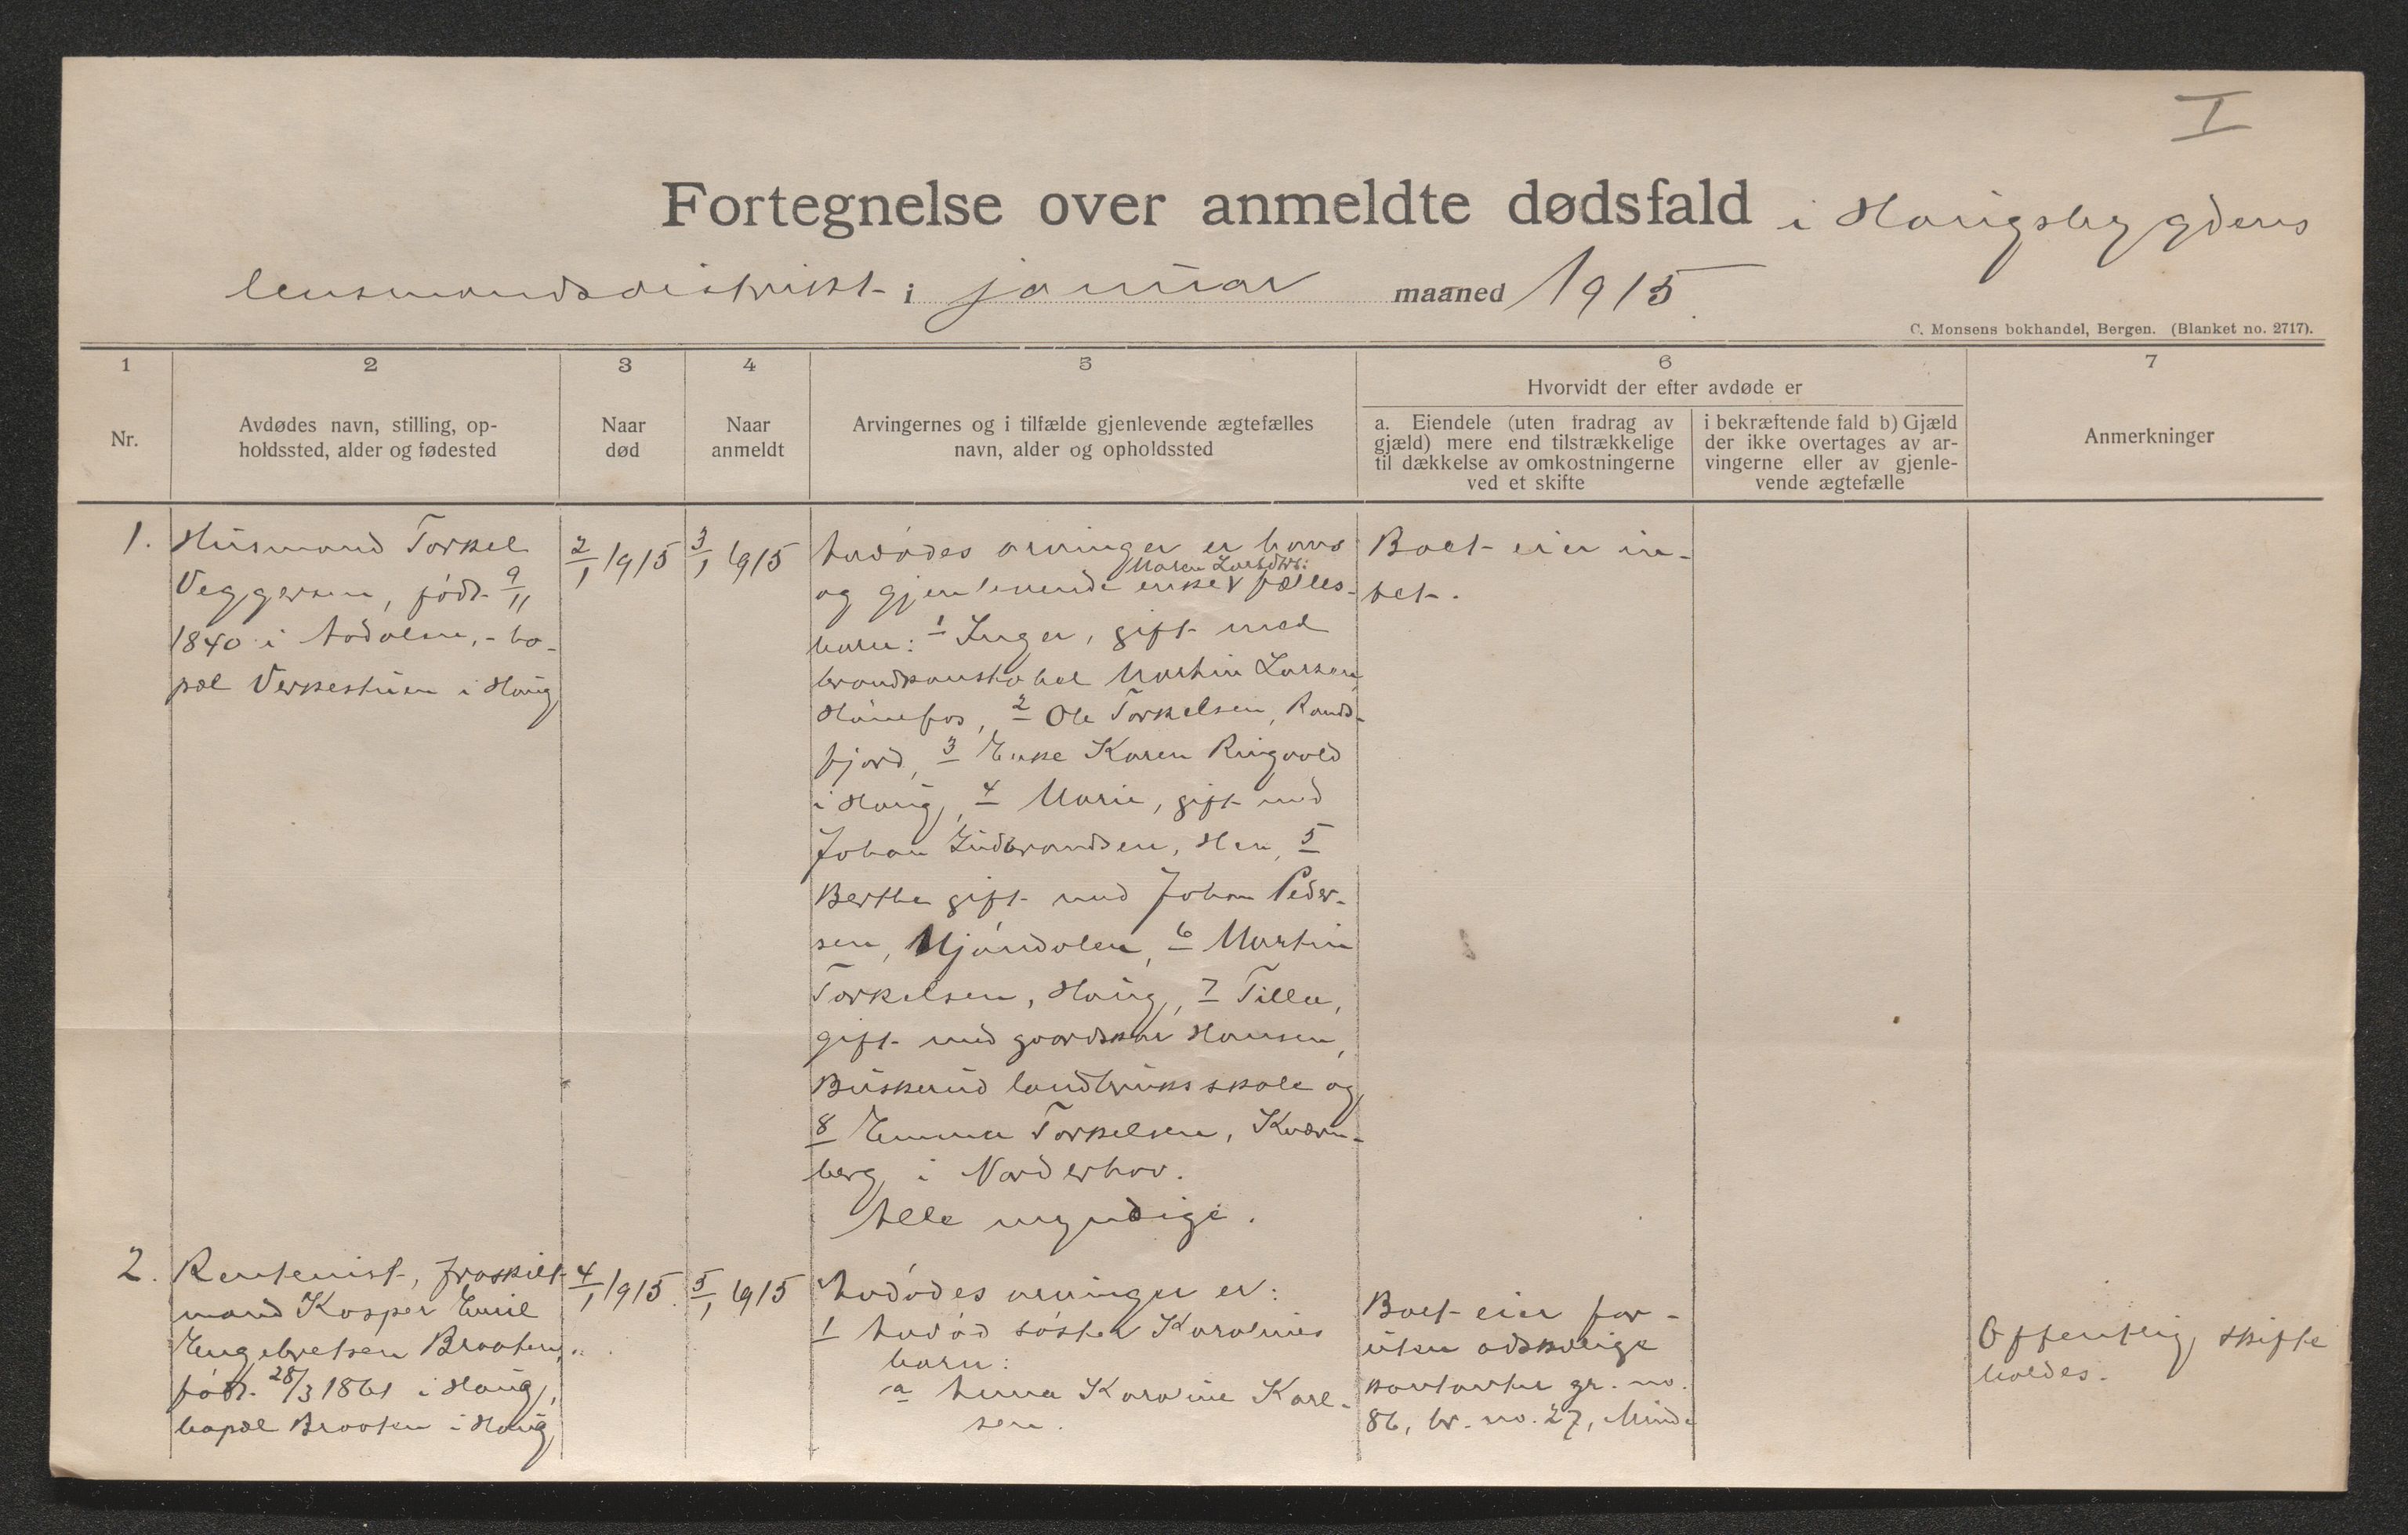 I
Fortegnelse over anmeldte dødsfald i Haugsbygdens
lensmandsdistrikt i januar maaned 1915.
C. Monsens bokhandel, Bergen. (Blanket no. 2717).
1
2
3
4
5
6
7
Nr.
Avdødes navn, stilling, op-
holdssted, alder og fødested
Naar
død
Naar
anmeldt
Arvingernes og i tilfælde gjenlevende ægtefælles
navn, alder og opholdssted
Hvorvidt der efter avdøde er
a. Eiendele (uten fradrag av
gjæld) mere end tilstrækkelige
til dækkelse av omkostningerne
ved et skifte
i bekræftende fald b) Gjæld
der ikke overtages av ar-
vingerne eller av gjenle-
vende ægtefælle
Anmerkninger
1.
Husmand Torkel
Veggersen, født 9/11
1840 i Aadalen, - bo-
pæl Verkestuen i Haug
2/1 1915
3/1 1915
Avdødes arvinger er hans
Maren Larsdtr:
og gjenlevende enke fælles-
barn: 1 Inger, gift med
brandkonstabel Martin Larsen,
Hønefos, 2 Ole Torkelsen, Rands-
fjord, 3 Enke Karen Ringvold
i Haug, 4 Marie, gift med
Johan Gudbrandsen, Hen, 5
Berthe gift med Johan Peder-
sen, Mjøndalen, 6 Martin
Torkelsen, Haug, 7 Tilla,
gift med gaardskar Hansen,
Buskerud landbruksskole og
8 Emma Torkelsen, Kværn-
berg i Norderhov.
Alle myndige.
Boet eier in-
tet.
2.
Rentenist, fraskilt
mand Kasper Emil
Engebretsen Braaten,
født 28/3 1861 i Haug,
bopæl Braaten i Haug
4/1 1915.
5/1 1915
Avdødes arvinger er:
1 Avdød søster Karolines
barn:
a Anna Karoline Karl-
sen.
Boet eier for-
uten adskillige
kontanter gr. no.
86, br. no. 27, Minde
Offentlig skifte
holdes.